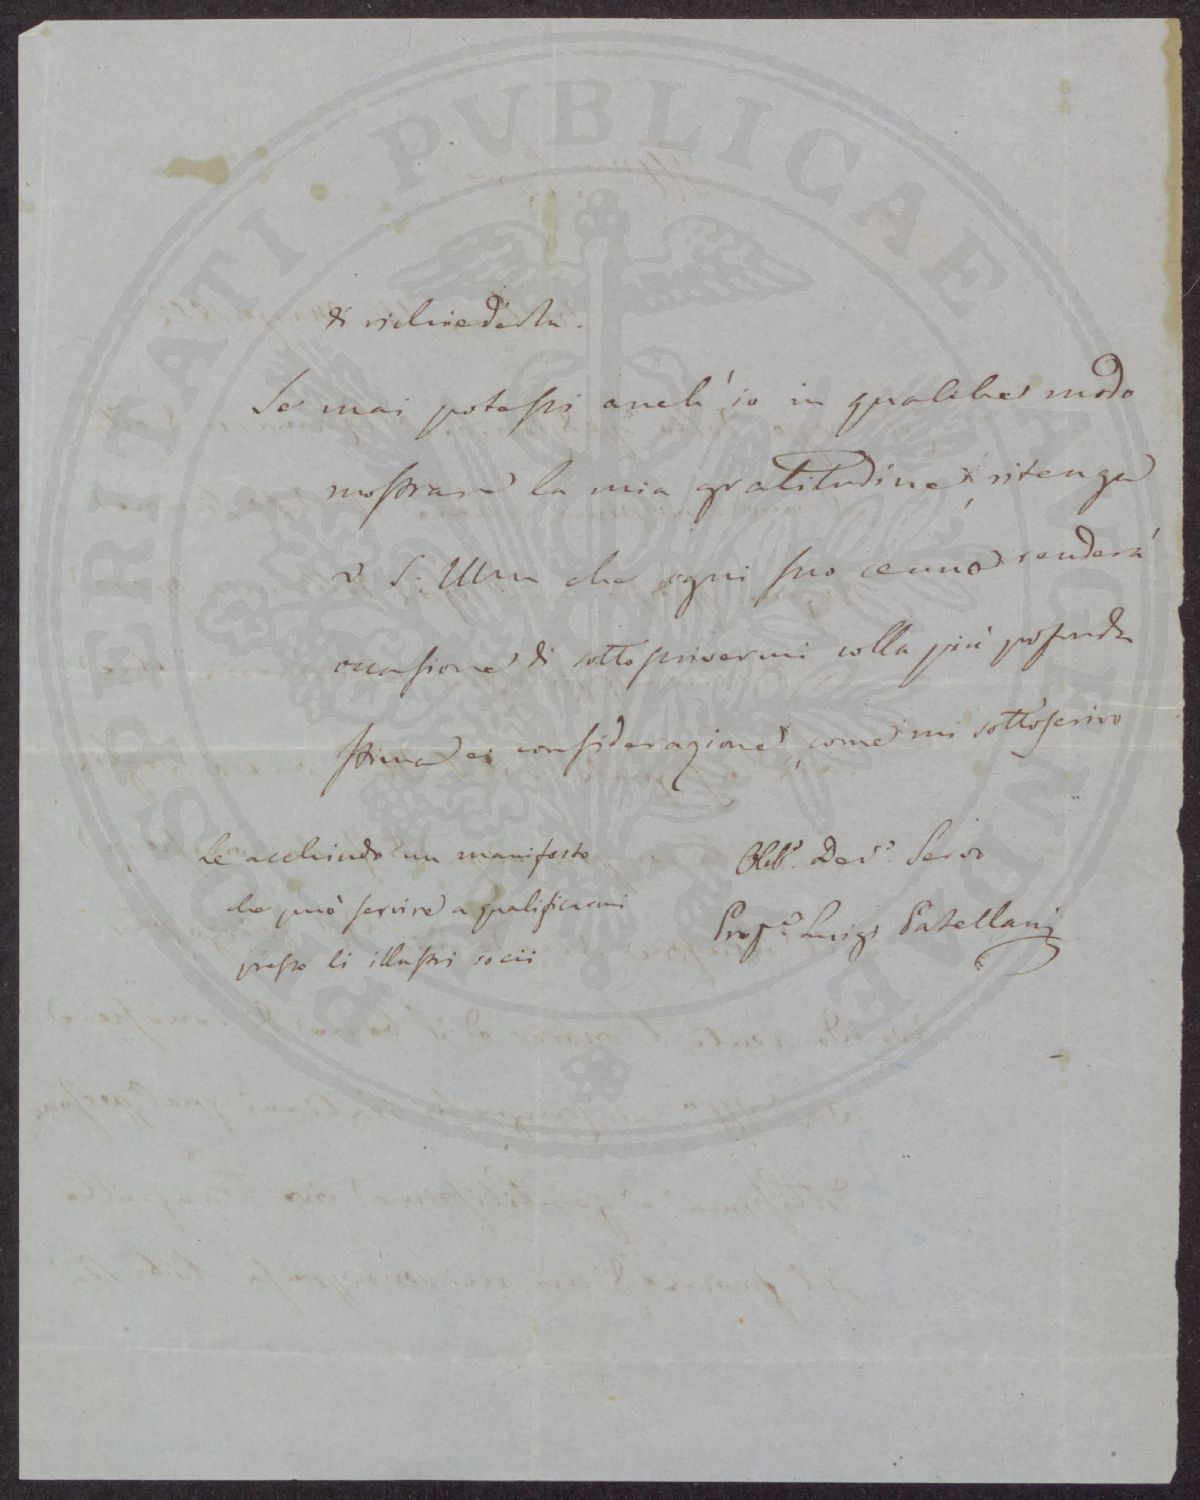 PROSPERITATI PVBLICAE AVGENDAE
di richiederla.
Se mai potessi anch'io in qualche modo
mostrare la mia gratitudine, ritenga
S. Ill.ma che ogni suo cenno renderà
occasione di sottoscrivermi colla più profonda
stima e considerazione, come mi sottoscrivo
Le acchiudo un manifesto
che può servire a qualificarmi
presso li illustri socii
Obb.o Dev.o Servo
Prof.e Luigi Patellani